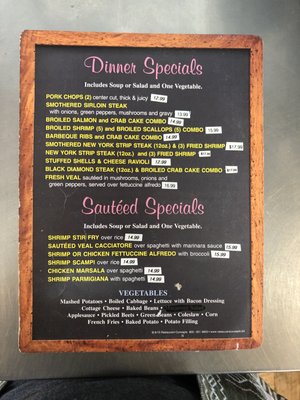 Dinner Specials
Includes Soup or Salad and One Vegetable.
PORK CHOPS (2) center cut, thick & juicy 12.99
SMOTHERED SIRLOIN STEAK
with onions, green peppers, mushrooms and gravy 13.99
BROILED SALMON and CRAB CAKE COMBO 14.99
BROILED SHRIMP (5) and BROILED SCALLOPS (5) COMBO 15.99
BARBEQUE RIBS and CRAB CAKE COMBO 14.99
SMOTHERED NEW YORK STRIP STEAK (12oz.) & (3) FRIED SHRIMP $17.99
NEW YORK STRIP STEAK (12oz.) and (3) FRIED SHRIMP
STUFFED SHELLS & CHEESE RAVIOLI 12.99
BLACK DIAMOND STEAK (12oz.) & BROILED CRAB CAKE COMBO
FRESH VEAL sautéed in mushrooms, onions and
green peppers, served over fettuccine alfredo 16.99
Sautéed Specials
Includes Soup or Salad and One Vegetable.
SHRIMP STIR FRY over rice 14.99
SAUTÉED VEAL CACCIATORE over spaghetti with marinara sauce 15.99
SHRIMP OR CHICKEN FETTUCCINE ALFREDO with broccoli 15.99
SHRIMP SCAMPI over rice 14.99
CHICKEN MARSALA over spaghetti 14.99
SHRIMP PARMIGIANA with spaghetti 14.99
VEGETABLES
Mashed Potatoes • Boiled Cabbage • Lettuce with Bacon Dressing
Cottage Cheese • Baked Beans •
Applesauce • Pickled Beets • Green Beans • Coleslaw • Corn
French Fries • Baked Potato • Potato Filling